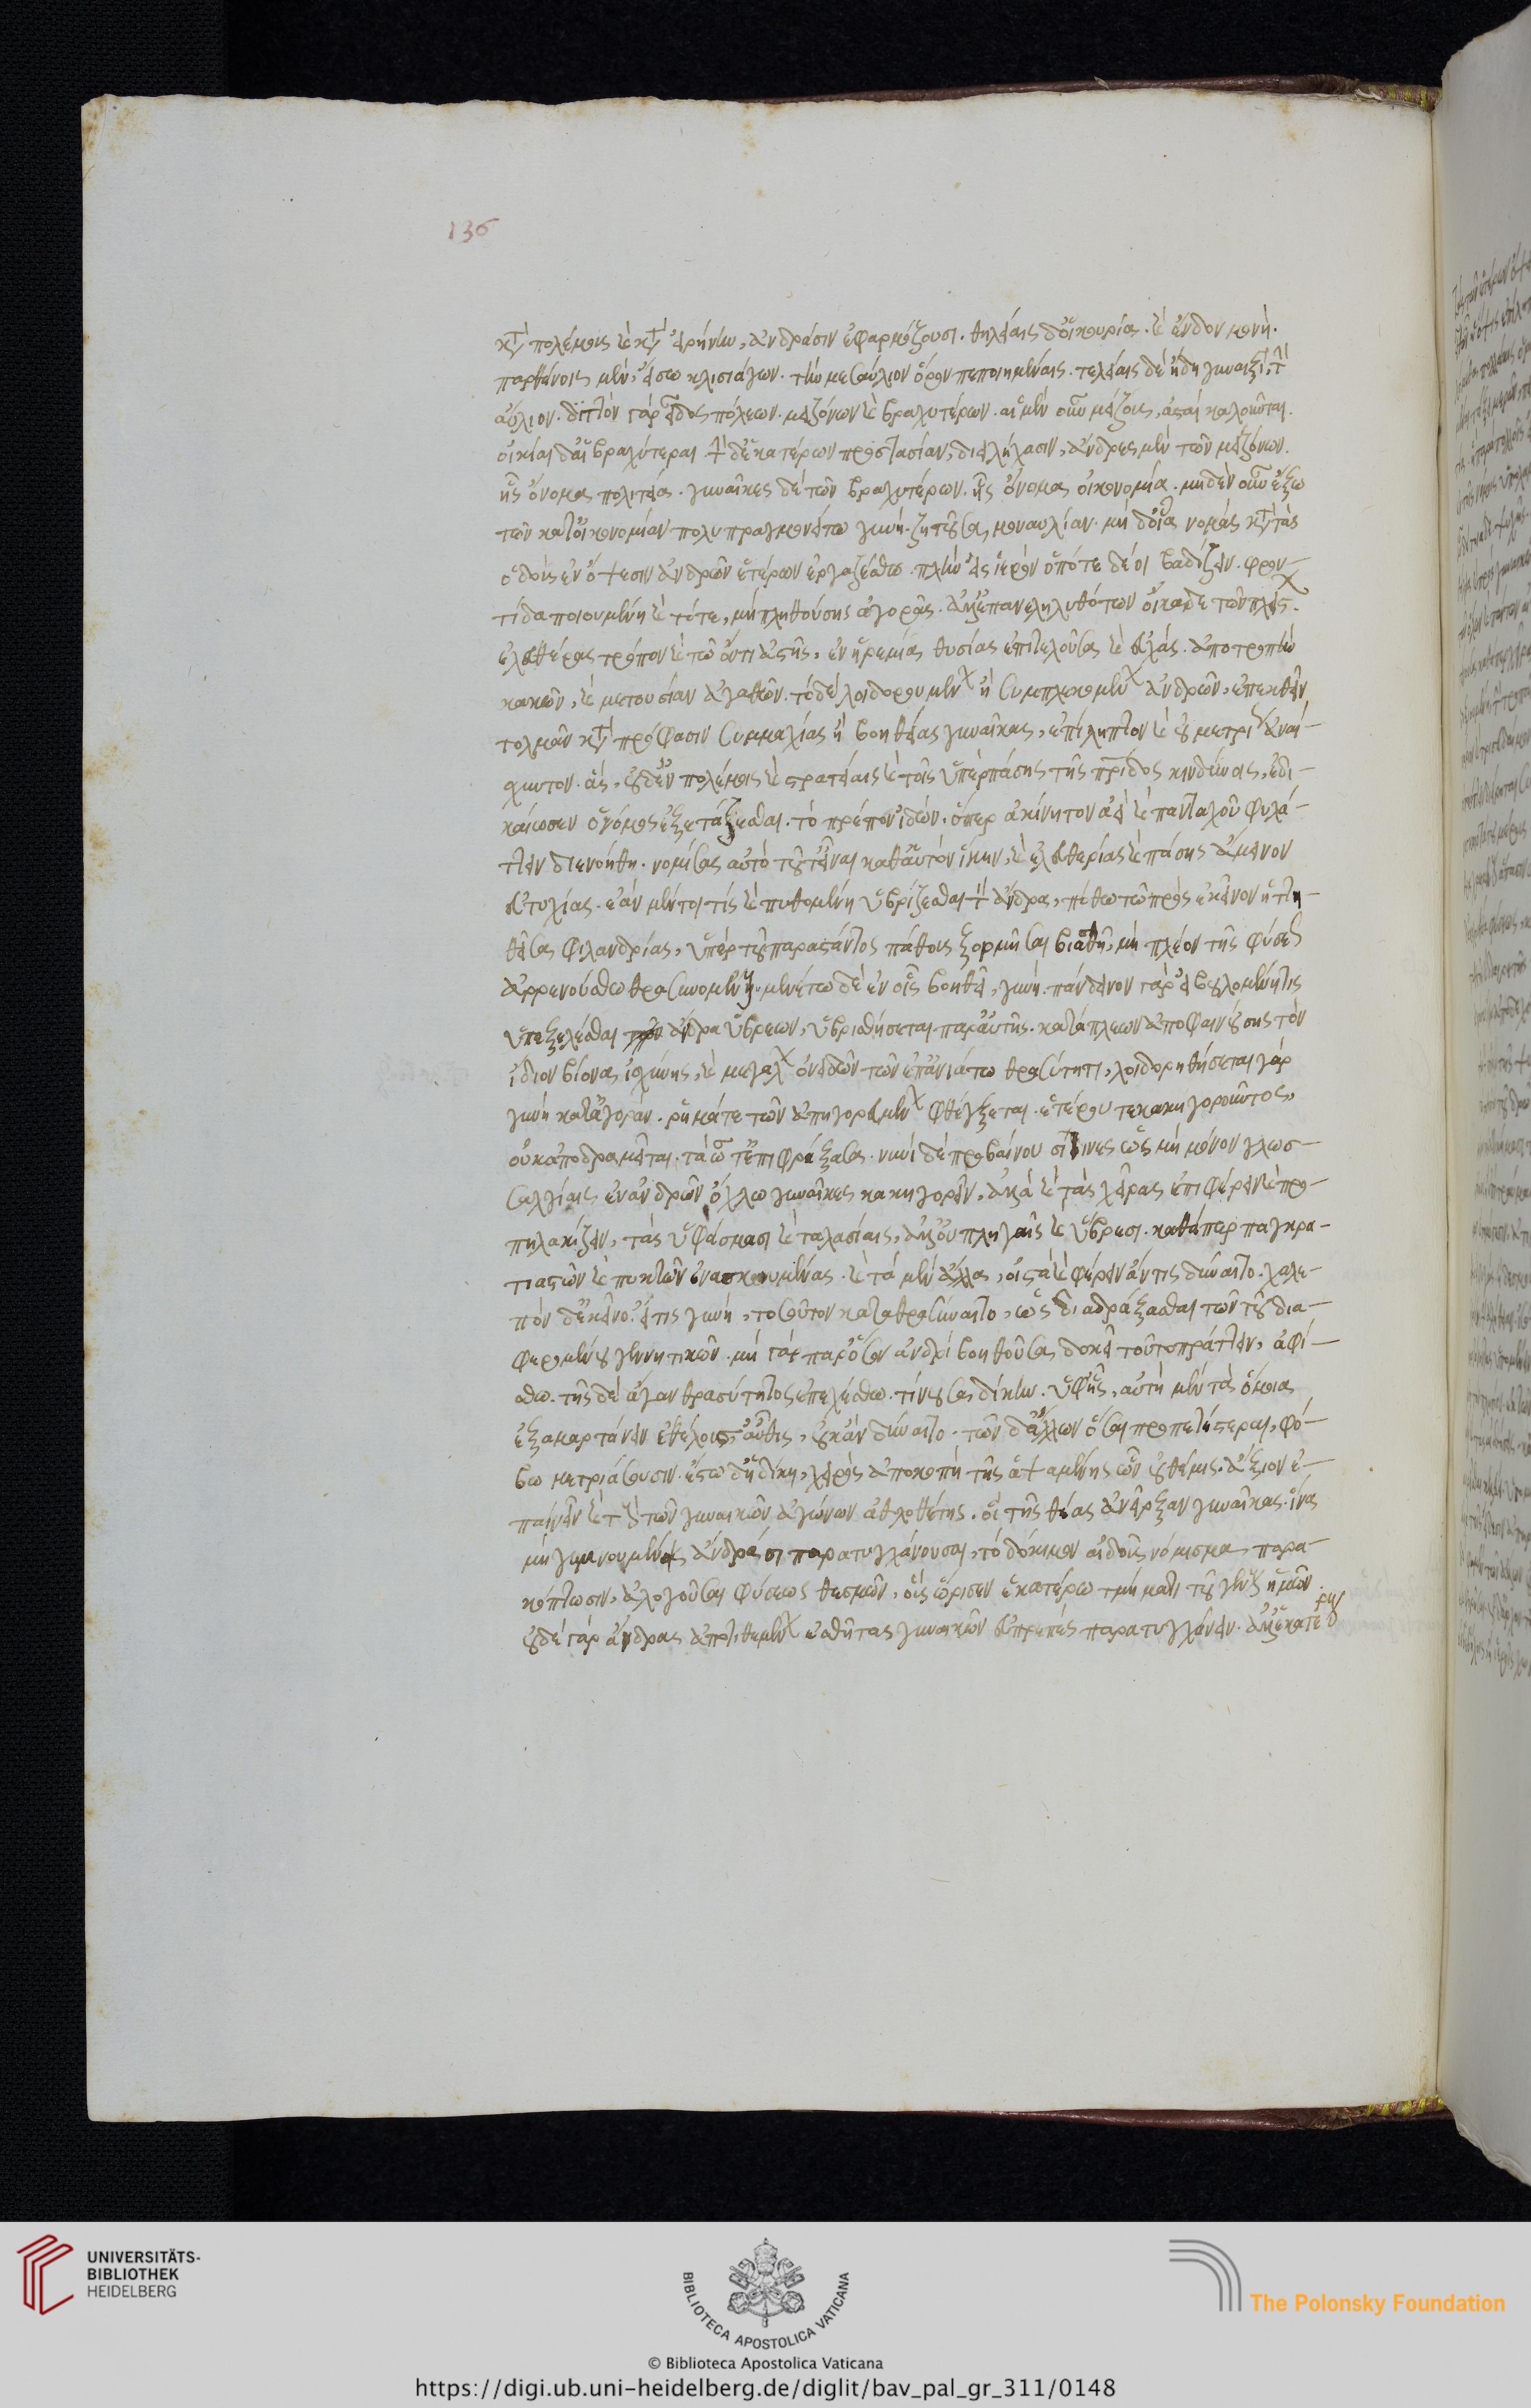 136
κατὰ πολέμους καὶ κατ' εἰρήνην, ἀνδράσιν ἐφαρμόζουσι. θηλείαις δ' οἰκουρίας. καὶ ἔνδον μονή.
παρθένοις μὲν, εἴσω κλισιάγων. τὴν μεσαύλιον ὅρον πεποιημέναις. τελείαις δὲ ἤδη γυναιξὶ, τὴν
αὔλιον. διττὸν γὰρ εἶδος πόλεων. μειζόνων καὶ βραχυτέρων. αἱ μὲν οὖν μείζους, ἄστη καλοῦνται.
οἰκίαι δ' αἱ βραχύτεραι. τὴν δ' ἑκατέρων προστασίαν, διειλήχασιν, ἄνδρες μὲν τῶν μειζόνων.
ἧς ὄνομα πολιτεία. γυναῖκες δὲ τῶν βραχυτέρων. ἧς ὄνομα οἰκονομία. μηδὲν οὖν ἔξω
τῶν κατ' οἰκονομίαν πολυπραγμονείτω γυνή. ζητοῦσα μοναυλίαν. μὴ δ' οἷα νομὰς κατὰ τὰς
ὁδοὺς ἐν ὄψεσιν ἀνδρῶν ἑτέρων ἐργαζέσθω. πλὴν εἰς ἱερὸν ὁπότε δέοι βαδίζειν. φρον-
τίδα ποιουμένη καὶ τότε, μὴ πληθούσης ἀγορᾶς. ἀλλ' ἐπανεληλυθότων οἴκαδε τῶν πλείστων.
ἐλευθέρας τρόπον καὶ τῷ ὄντι ἀστῆς, ἐν ἠρεμίᾳ θυσίας ἐπιτελοῦσα καὶ εὐχάς. ἀποτροπὴν
κακῶν, καὶ μετουσίαν ἀγαθῶν. τὸ δὲ λοιδορουμένων ἢ συμπλεκομένων ἀνδρῶν, ἐπεκθεῖν
τολμᾶν κατὰ πρόφασιν συμμαχίας ἢ βοηθείας γυναῖκας, ἐπίληπτον καὶ οὐ μετρίως ἀναί-
σχυντον. ἃς, οὐδ' ἐν πολέμοις καὶ στρατείαις καὶ τοῖς ὑπὲρ πάσης τῆς πατρίδος κινδύνοις, ἐδι-
καίωσεν ὁ νόμος ἐξετάζεσθαι. τὸ πρέπον ἰδών. ὅπερ ἀκίνητον ἀεὶ καὶ πανταχοῦ φυλά-
ττειν διενοήθη. νομίσας αὐτὸ τοῦτ' εἶναι καθ' αὑτὸ νίκην, καὶ ἐλευθερίας καὶ πάσης ἄμεινον
εὐτυχίας. ἐὰν μέντοι τὶς καὶ πυθομένη ὑβρίζεσθαι τὸν ἄνδρα, πόθῳ τῷ πρὸς ἐκεῖνον ἡττη-
θεῖσα φιλανδρίας, ὑπὲρ τοῦ παραστάντος πάθους ἐξορμῆσαι βιασθῇ, μὴ πλέον τῆς φύσεως
ἀρρενούσθω θρασυνομένη. μενέτω δὲ ἐν οἷς βοηθεῖ, γυνή. πάνδεινον γὰρ εἰ βουλομένη τις
ὑπεξελέσθαι ἄνδρα ὕβρεων, ὑβρισθήσεται. παρ' αὑτῆς. κατάπλεων ἀποφαινούσης τὸν
ἴδιον βίον αἰσχύνης, καὶ μεγάλων ὀνειδῶν τῶν ἐπ' ἀνιάτῳ θρασύτητι, λοιδορηθήσεται γὰρ
γυνὴ κατ' ἀγοράν. ῥῆμά τε τῶν ἀπηγορευμένων φθέγξεται. ἑτέρου τε κακηγοροῦντος,
οὐκ ἀποδραμεῖται. τὰ ὦτα ἐπιφράξασα. νυνὶ δὲ προβαίνουσί τινες ὡς μὴ μόνον γλωσ-
σαλγίαις ἐν ἀνδρῶν ὄχλῳ γυναῖκες κακηγορεῖν, ἀλλὰ καὶ τὰς χεῖρας ἐπιφέρειν καὶ προ-
πηλακίζειν, τὰς ὑφάσμασι καὶ ταλασίαις, ἀλλ' οὐ πληγαῖς καὶ ὕβρεσι. καθάπερ παγκρα-
τιαστῶν καὶ πυκτῶν ἐνασκουμένας. καὶ τὰ μὲν ἄλλα, οἰστὰ καὶ φέρειν ἄν τις δύναιτο. χαλε-
πὸν δ' ἐκεῖνο. εἴ τις γυνή, τοσοῦτον καταθρασύναιτο, ὡς διαδράξασθαι τῶν τοῦ δια-
φερομένου γεννητικῶν. μὴ γὰρ παρόσον ἀνδρὶ βοηθοῦσα δοκεῖ τοῦτο πράττειν, ἀφί-
σθω. τῆς δὲ ἄγαν θρασύτητος ἐπεχέσθω. τίνουσα δίκην. ὑφ' ἧς, αὐτὴ μὲν τὰ ὅμοια
ἐξαμαρτάνειν ἐθέλουσ' αὖθις, οὐκ ἂν δύναιτο. τῶν δ' ἄλλων ὅσαι προπετέστεραι, φό-
βῳ μετριάσουσιν. ἔστω δ' ἡ δίκη, χειρὸς ἀποκοπὴ τῆς ἁψαμένης ὧν οὐ θέμις. ἄξιον ἐ-
παινεῖν καὶ τοὺς τῶν γυμνικῶν ἀγώνων ἀθλοθέτης. οἳ τῆς θέας ἀνεῖρξαν γυναῖκας. ἵνα
μὴ γυμνουμένοις ἀνδράσι παρατυγχάνουσαι, τὸ δόκιμον αἰδοῦς νόμισμα παρα-
κόπτωσιν, ἀλογοῦσαι φύσεως θεσμῶν, οἷς ὥρισεν ἑκατέρῳ τμήματι τοῦ γένους ἡμῶν.
οὐδὲ γὰρ ἄνδρας ἀποτιθεμένων ἐσθῆτας γυναικῶν εὐπρεπὲς παρατυγχάνειν. ἀλλ' ἑκατέρους
UNIVERSITÄTS-
BIBLIOTHEK
HEIDELBERG
BIBLIOTECA APOSTOLICA VATICANA
The Polonsky Foundation
© Biblioteca Apostolica Vaticana
https://digi.ub.uni-heidelberg.de/diglit/bav_pal_gr_311/0148